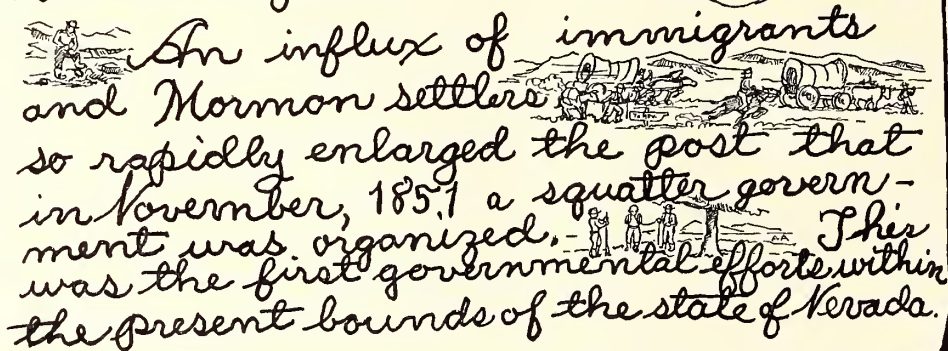 An influx of immigrants
and Mormon settlers
so rapidly enlarged the post that
in November, 1851 a squatter govern-
ment was organized. This
was the first governmental efforts within
the present bounds of the state of Nevada.